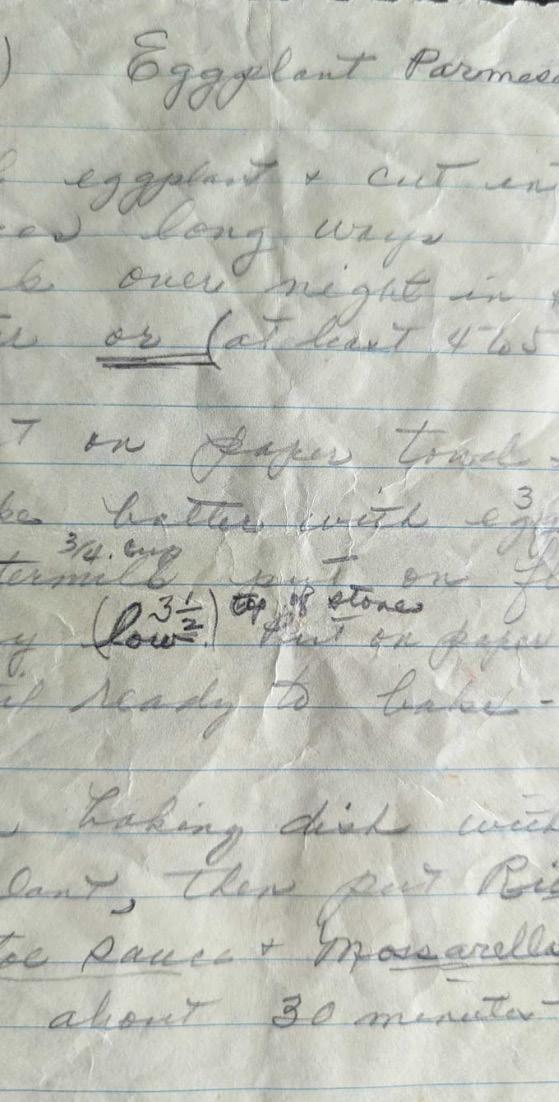 ) Eggplant Parmesa
eggplant & cut in
ces long ways
k over night in
er or (at least 4 to 5
T on paper towel -
ke batter with egg 3
termilk 3/4 cup put on f
y (low 3 1/2) top of stove Put on paper
il ready to bake -
baking dish with
lant, then put Ri
toe sauce + Mossarella
about 30 minutes